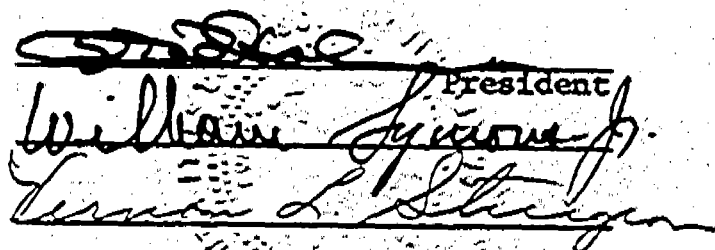 President
William Symons Jr.
Vernon L. Sturgeon